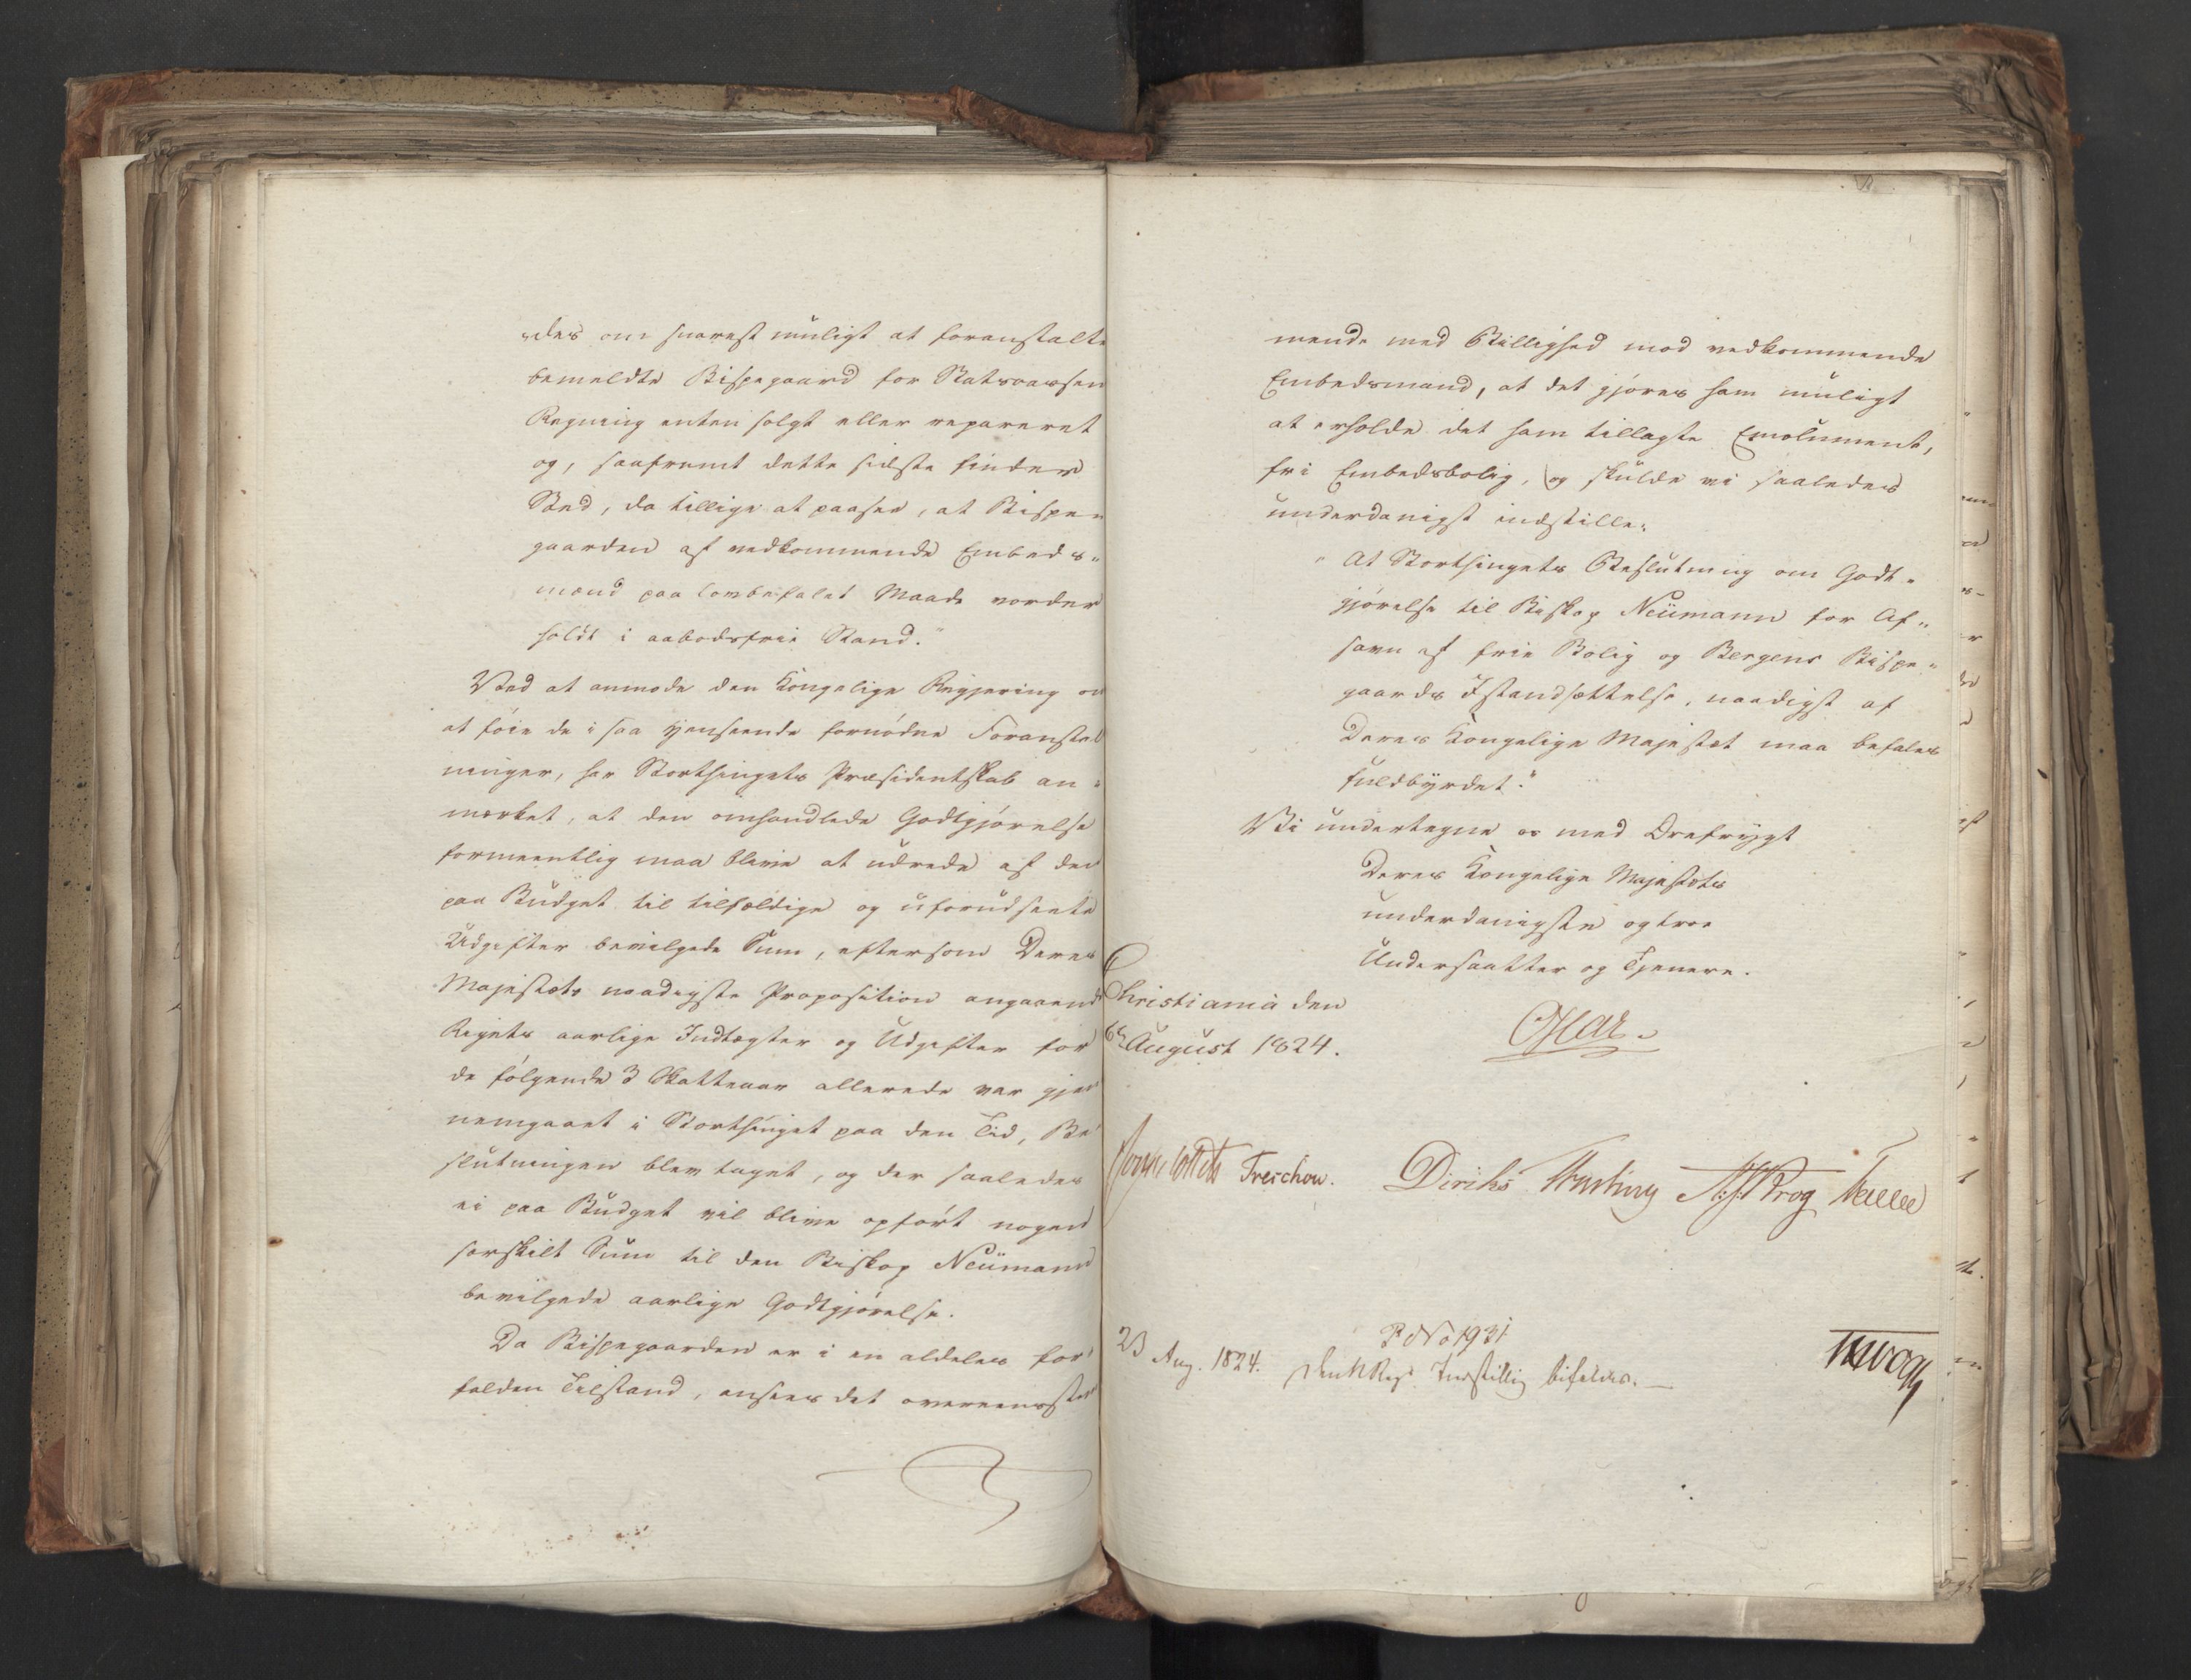 des om snarest muligt at foranstalte
bemeldte Bispegaard for Statscassens
Regning enten solgt eller repareret
og, saafremt dette sidste finder
Sted, da tillige at paasee, at Bispe-
gaarden af vedkommende Embeds-
mand paa lovbefalet Maade vorder
holdt i aabodsfrie Stand."
Ved at anmode den Kongelige Regjering om
at føie de i saa Henseende fornødne Foranstalt
ninger, har Storthingets Præsidentskab an-
mærket, at den omhandlede Godtgjørelse
formeentlig maa blive at udrede af den
paa Budget til tilfældige og uforudseete
Udgifter bevilgede Sum, eftersom Deres
Majestæts naadigste Proposition angaaende
Rigets aarlige Indtægter og Udgifter for
de følgende 3 Skatteaar allerede var gjen
nemgaaet i Storthinget paa den Tid, Be
slutningen blev taget, og der saaledes
ei paa Budget vil blive opført nogen
særskilt Sum til den Biskop Neumann
bevilgede aarlige Godtgjørelse.
Da Bispegaarden er i en aldeles for
falden Tilstand, ansees det overeensstem
mende med Billighed mod vedkommende
Embedsmand, at det gjøres ham muligt
at erholde det ham tillagte Emolument,
fri Embedsbolig, og skulde vi saaledes
underdanigst indstille:
"At Storthingets Beslutning om Godt-
gjørelse til Biskop Neumann for Af-
savn af frie Bolig og Bergens Bispe-
gaards Istandsættelse, naadigst af
Deres Kongelige Majestæt maa befales
fuldbyrdet."
Vi undertegne os med Ærefrygt
Deres Kongelige Majestæts
underdanigste og troe
Undersaatter og Tjenere.
Christiania den
6te August 1824.
Oscar.
Treschow. Diriks
P No 1931
23 Aug. 1824. Den N Regs Indstilling bifaldes.